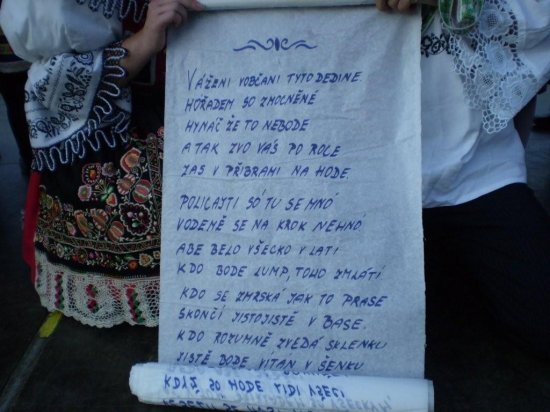 VÁŽENI VOBČANI TYTO DEDINE
HÓŘADEM SO ZMOCNĚNÉ
HYNÁČ ŽE TO NEBODE
A TAK ZVO VÁS PO ROCE
ZAS V PŘIBRAMI NA HODE.
POLICAJTI SÓ TU SE MNÓ
VODEMĚ SE NA KROK NEHNÓ
ABE BELO VŠECKO V LATI
KDO BODE LUMP, TOHO ZMLÁTÍ
KDO SE ZMRSKÁ JAK TO PRASE
SKONČÍ JISTOJISTĚ V BASE.
KDO ROZUMNĚ ZVEDÁ SKLENKU
JISTĚ BODE VÍTAN V ŠENKU
KDYŽ SO HODE LIDI VŠECI